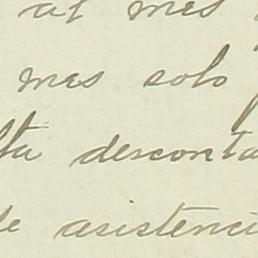 al mes
mes solo
lta desconta
de asistenci